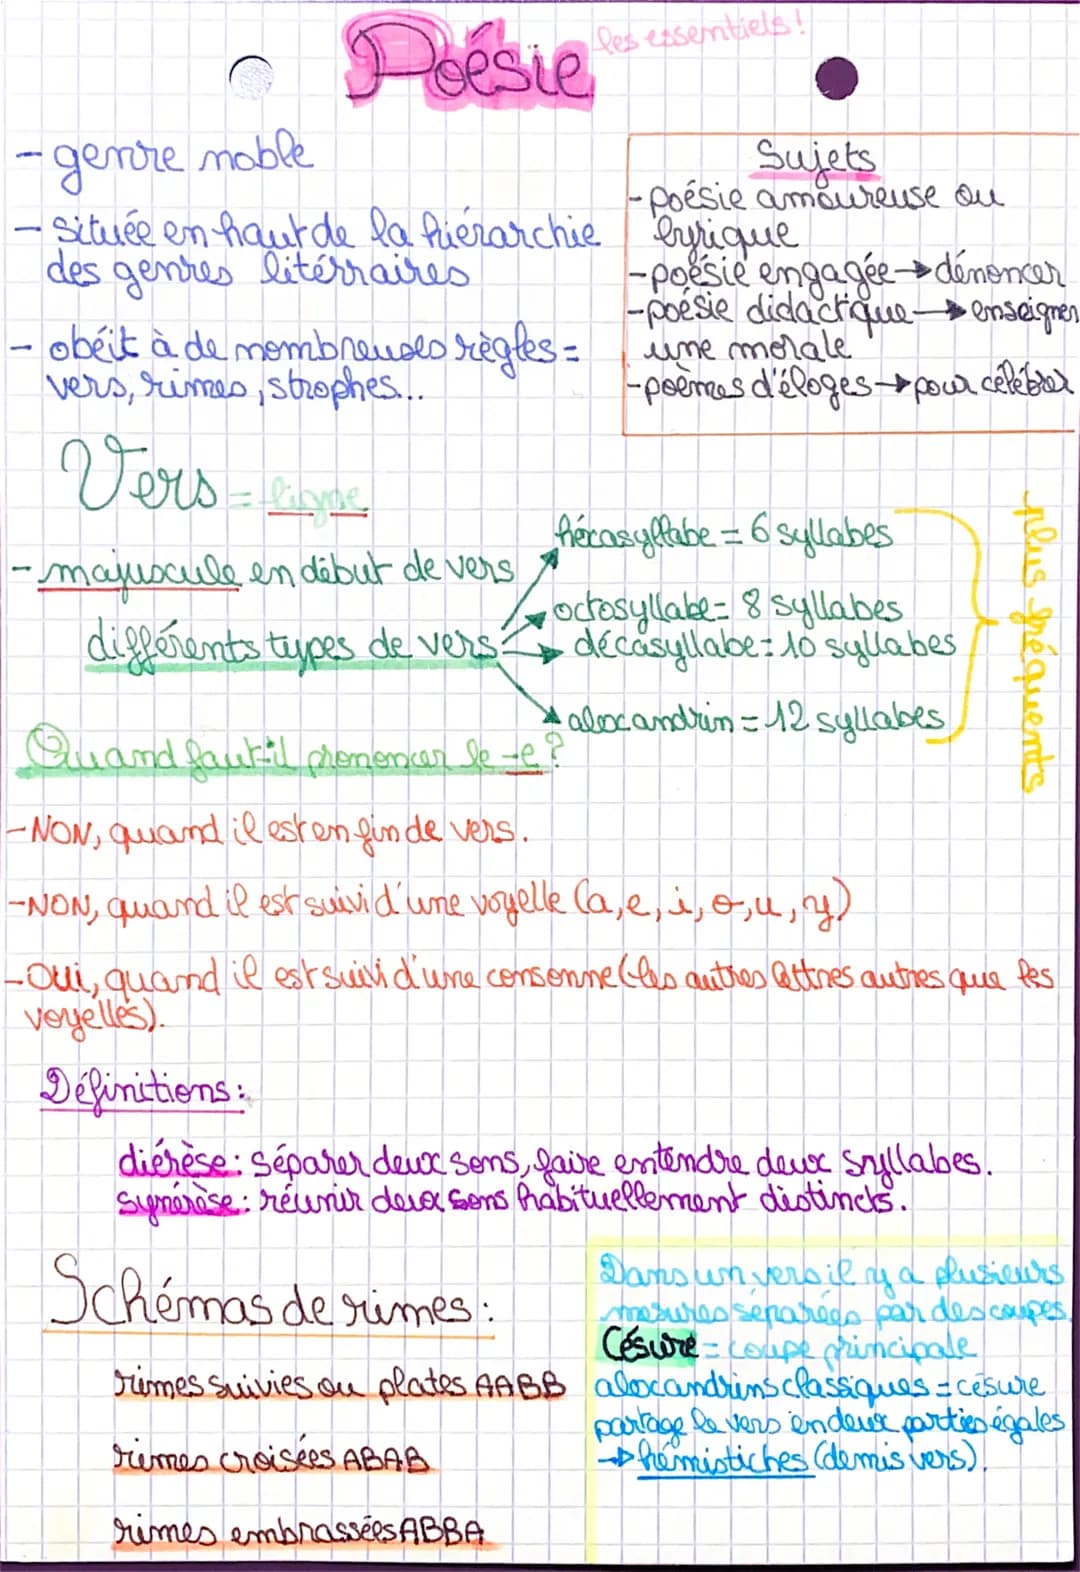 Poésie les essentiels !
- genre noble
- située en haut de la hiérarchie
des genres litérraires
- obéit à de nombreuses règles =
vers, rimes, strophes...
Sujets
- poésie amoureuse ou
lyrique
- poésie engagée → dénoncer
- poésie didactique → enseigner
une morale
- poèmes d'éloges → pour célébrer
Vers = ligne
- majuscule en début de vers
différents types de vers :
héxasyllabe = 6 syllabes
octosyllabe = 8 syllabes
décasyllabe = 10 syllabes
alexandrin = 12 syllabes
plus fréquents
Quand faut-il prononcer le -e ?
- NON, quand il est en fin de vers.
- NON, quand il est suivi d'une voyelle (a, e, i, o, u, y)
- Oui, quand il est suivi d'une consonne (les autres lettres autres que les
voyelles).
Définitions :
diérèse : séparer deux sons, faire entendre deux syllabes.
synérèse : réunir deux sons habituellement distincts.
Schémas de rimes :
rimes suivies ou plates AABB
rimes croisées ABAB
rimes embrassées ABBA
Dans un vers il y a plusieurs
mesures séparées par des coupes.
Césure = coupe principale
alexandrins classiques = césure
partage le vers en deux parties égales
→ hémistiches (demis vers).